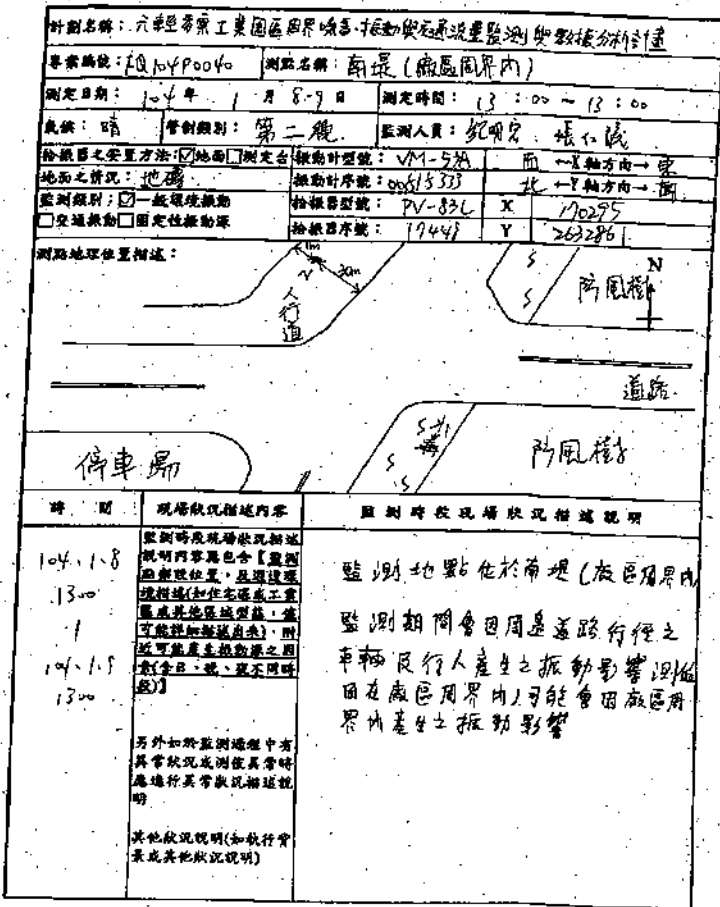 計劃名稱：六輕產業工業園區周界噪音、振動與交通流量監測與數據分析計畫
專案編號：AQ104P0040 測點名稱：南堤(廠區周界內)
測定日期：104年1月8-9日 測定時間：13：00～13：00
氣候：晴 管制類別：第二類 監測人員：
拾振器之安置方法:☑地面□測定台 振動計型號：VM-53A 西←X軸方向→東
地面之情況：地磚 振動計序號：00515333 北←Y軸方向→南
監測類別：☑一般環境振動 拾振器型號：PV-83C X 170295
□交通振動□固定性振動源 拾振器序號：17448 Y 2632861
測點地理位置描述：
1m
30m
人行道
防風樹
N
道路
停車場
防風樹
時間 現場狀況描述內容 監測時段現場狀況描述說明
104.1.8
1300
104.1.9
1300
監測時段現場狀況描述
說明內容需包含【監測
點架設位置，及週遭環
境描述(如住宅區或工業
區或其他區域型態，儘
可能詳細描述出來)，附
近可能產生振動源之因
素(含日、晚、夜不同時
段)】
另外如於監測過程中有
異常狀況或測值異常時
應進行異常狀況描述說
明
其他狀況說明(如執行背
景或其他狀況說明)
監測地點位於南堤(廠區周界內
監測期間會因周邊道路行徑之
車輛及行人產生之振動影響測值
因在廠區周界內,可能會因廠區周
界內產生之振動影響